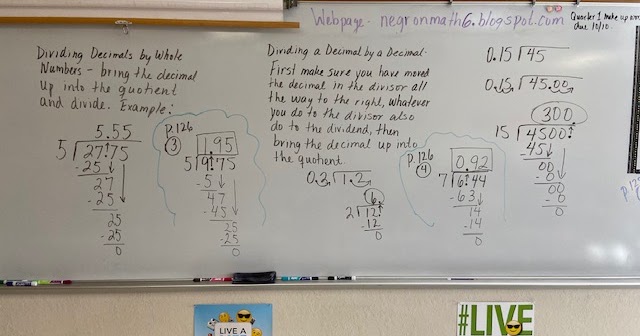 Webpage - negronmath6.blogspot.com
Quarter 1 make up work
due 10/10.
Dividing Decimals by Whole
Numbers - bring the decimal
up into the quotient
and divide. Example:
5.55
5 27.75
-25
27
-25
25
-25
0
p.126
3
1.95
5 9.75
-5
47
-45
25
-25
0
Dividing a Decimal by a Decimal.
First make sure you have moved
the decimal in the divisor all
the way to the right, whatever
you do to the divisor also
do to the dividend, then
bring the decimal up into
the quotient.
1.2
6.
2 12.
-12
0
p.126
4
0.92
7 6.44
-63
14
-14
0
0.15 45
0.15 45.00
300.
15 4500.
-45
00
-0
00
-0
0
LIVE A
#LIVE